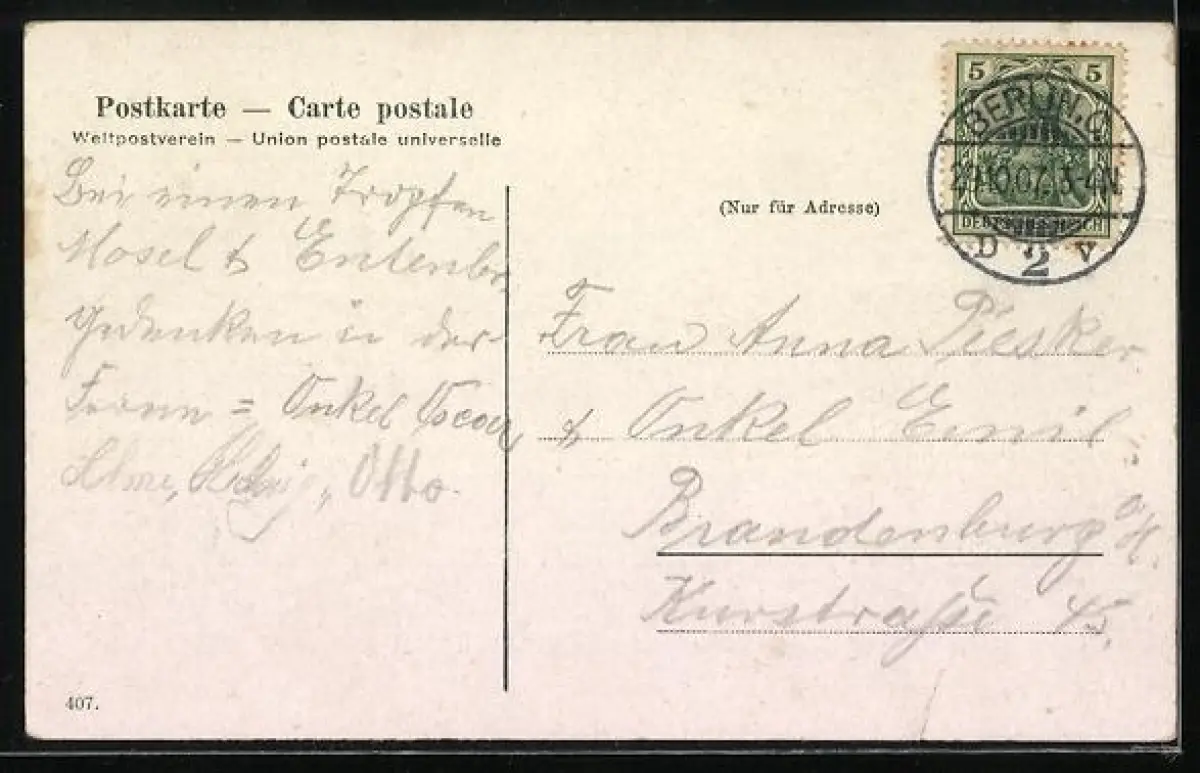 Postkarte — Carte postale
Weltpostverein — Union postale universelle
(Nur für Adresse)
5 5
BERLIN, C.
10.07. 3-4N
DEUTSCHES REICH
D 2 V
Bei einen Tropfen
Mosel & Entenbr.
gedenken in der
Onkel Oscar
Otto
Frau Anna Piesker
& Onkel Emil
Brandenburg a/H.
Kurstraße 45.
407.